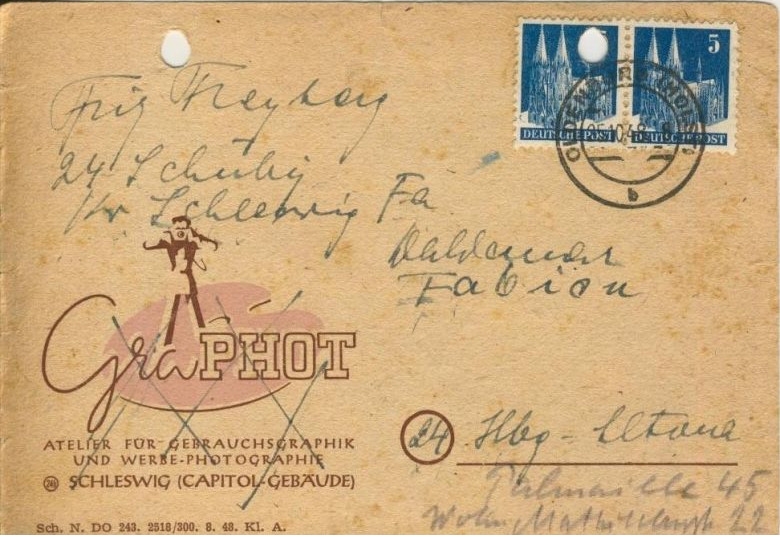 5 5
DEUTSCHE POST DEUTSCHE POST
OLDENBURG (HOLST)
25.10.48
b
Friz Freyberg
24 Schuby
Kr Schleswig
Fa
Waldemar
Fabian
GraPHOT
ATELIER FÜR GEBRAUCHSGRAPHIK
UND WERBE-PHOTOGRAPHIE
24b SCHLESWIG (CAPITOL-GEBÄUDE)
24 Hbg - Altona
Palmaille 45
22
Sch. N. DO 243. 2518/300. 8. 48. Kl. A.